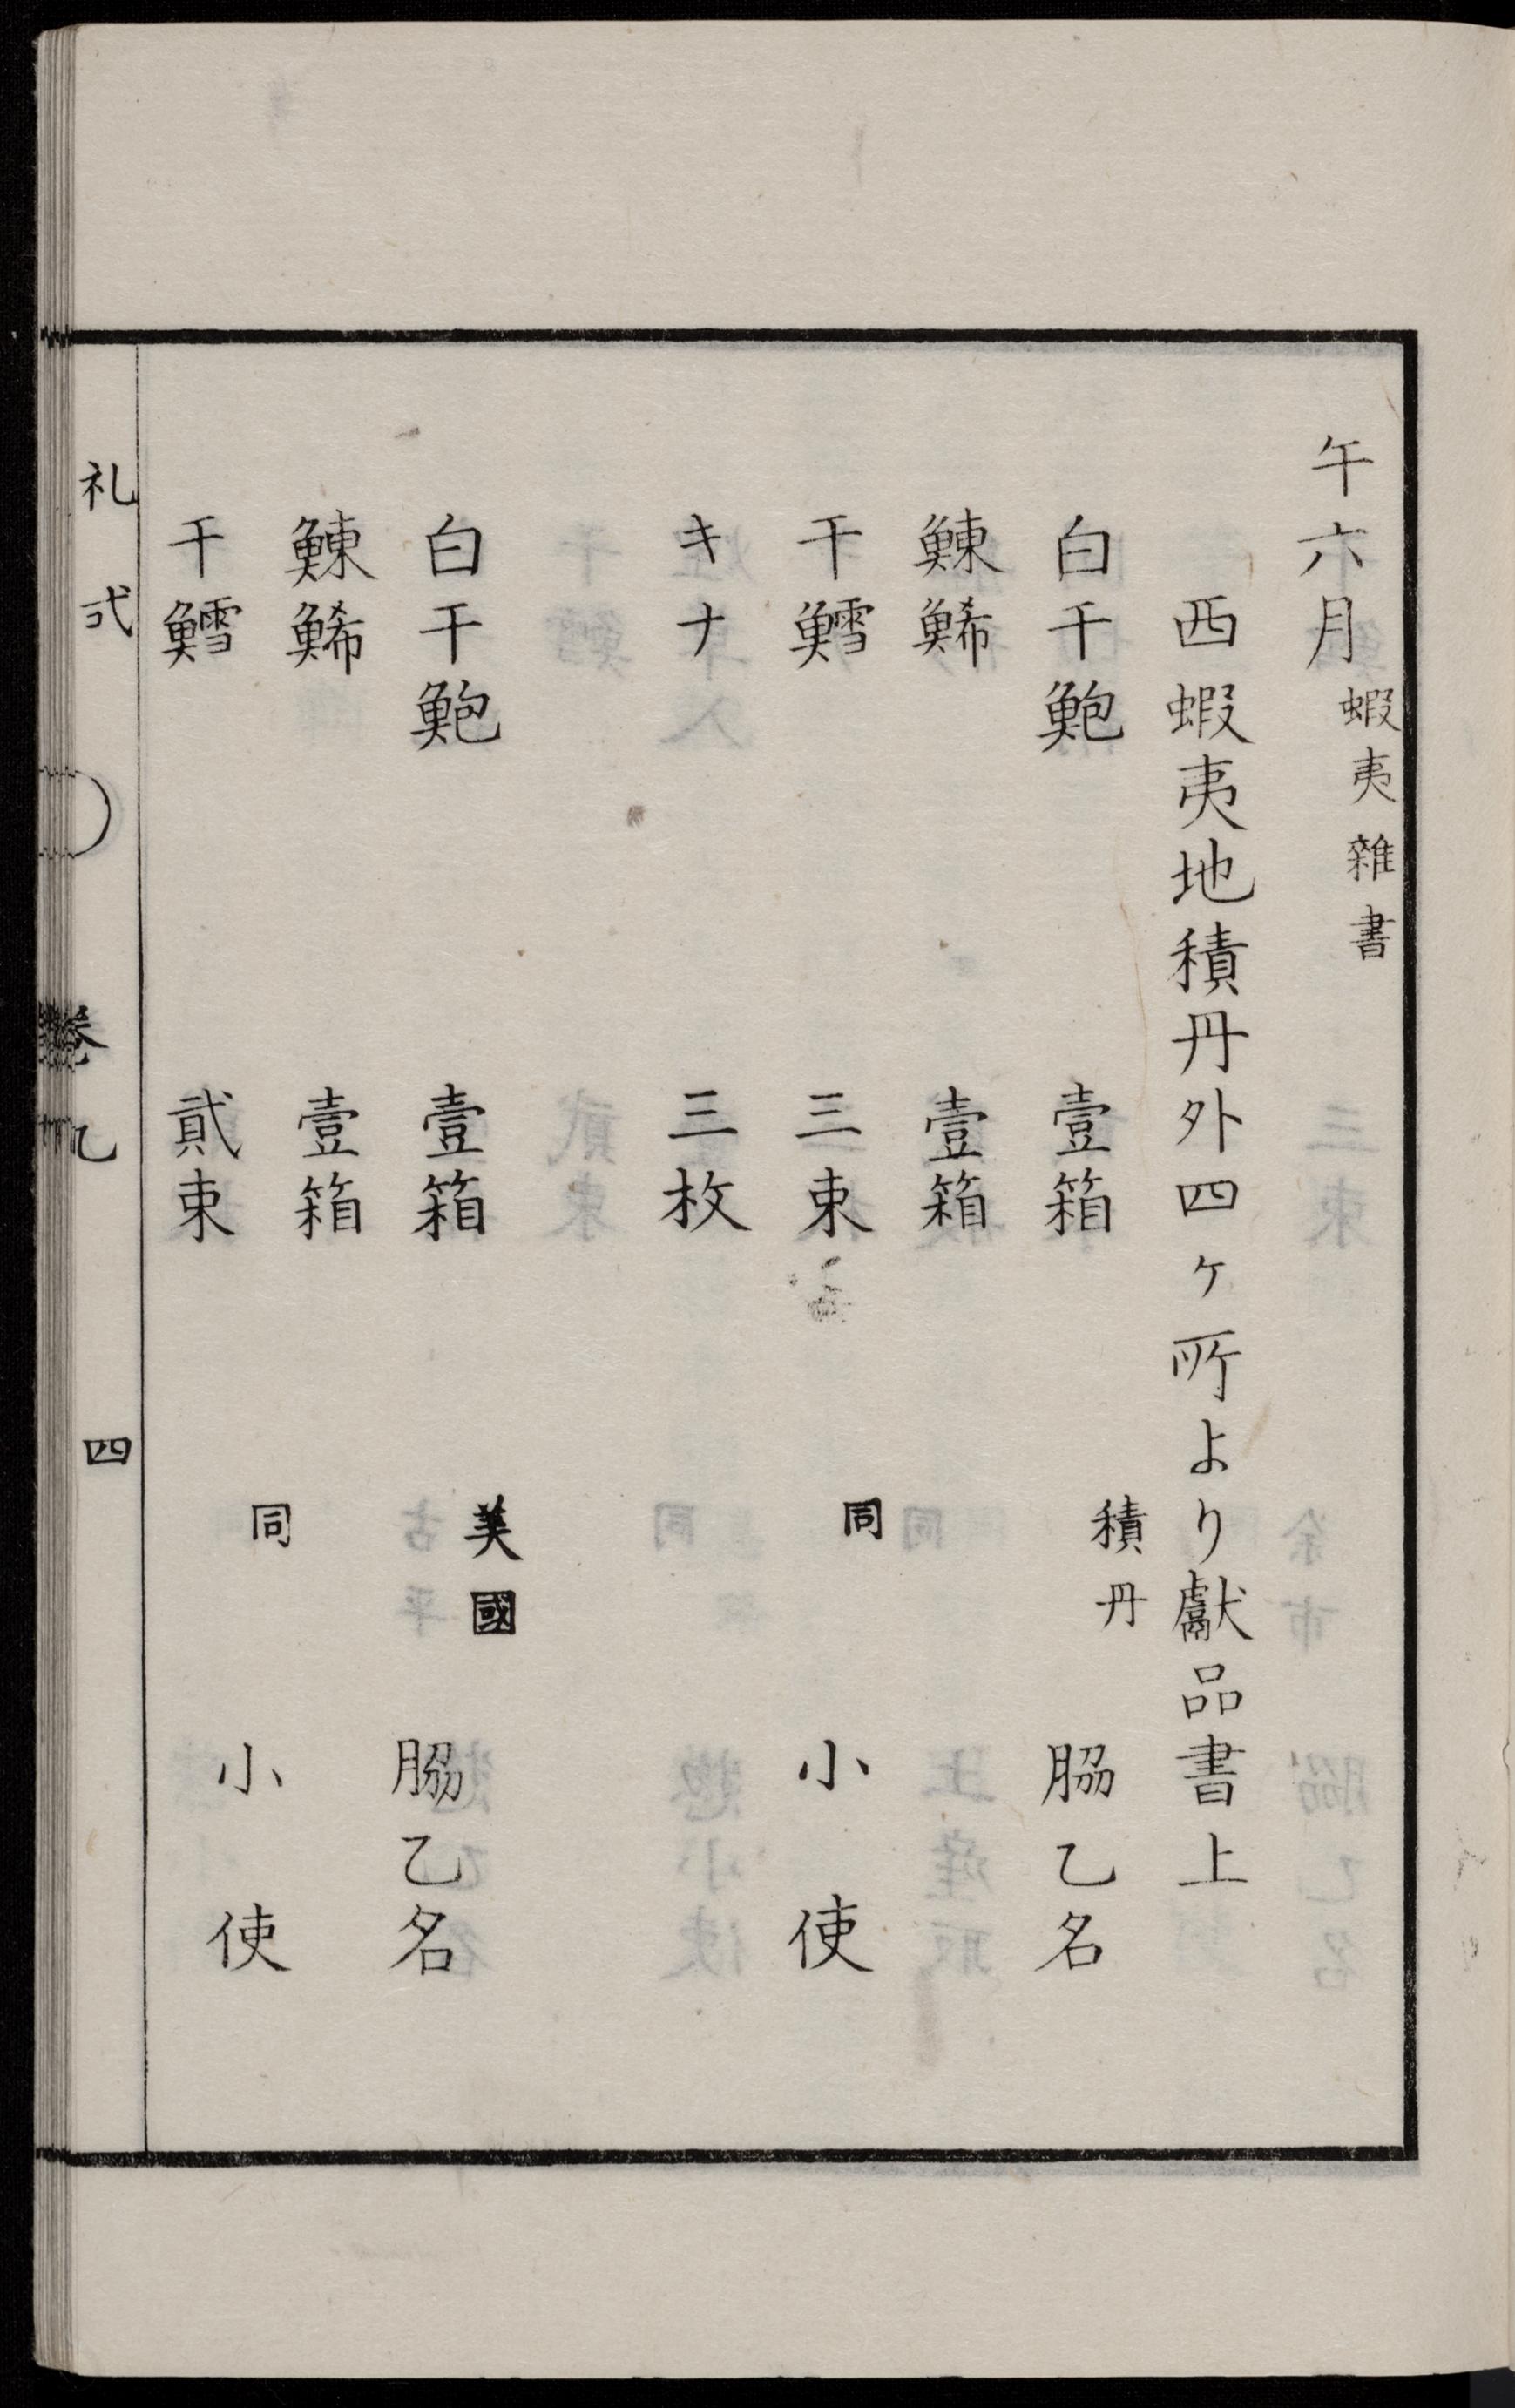 午六月蝦夷雜書
西蝦夷地積丹外四ヶ所より獻品書上
白干鮑 壹箱 積丹 脇乙名
鰊鯑 壹箱
干鱈 三束 同 小使
キナ 三枚
白干鮑 壹箱 美國 脇乙名
鰊鯑 壹箱
干鱈 貳束 同 小使
礼式 卷乙 四